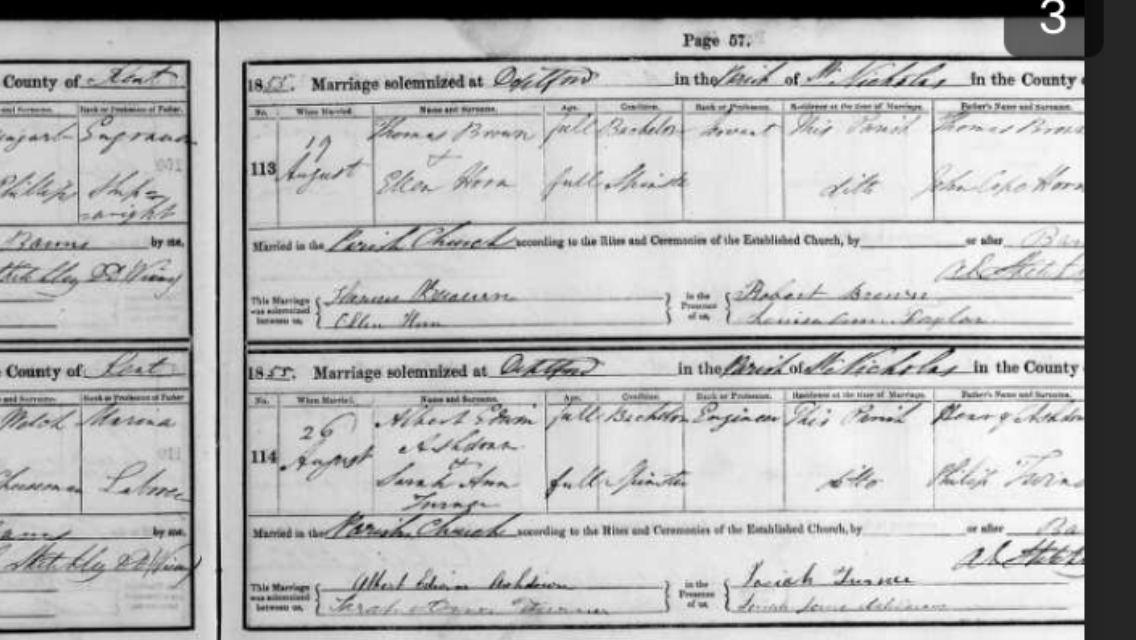 3
County of Kent
and Surname. Rank or Profession of Father.
Engraver
Phillips Ship=
wright
Banns by me,
County of Kent
and Surname. Rank or Profession of Father
Marine
Cheeseman Labourer
by me,
Page 57.
1855. Marriage solemnized at Deptford in the Parish of St Nicholas in the County
No. When Married. Name and Surname. Age. Condition. Rank or Profession. Residence at the time of Marriage. Father's Name and Surname.
113 19 August Thomas Brown full Bachelor Servant This Parish Thomas Brown
+
Ellen Horn full Spinster ditto John Cope Horn
Married in the Parish Church according to the Rites and Ceremonies of the Established Church, by or after Ban
This Marriage was solemnized between us, Thomas Brown in the Presence of us, Robert Brown
Ellen Horn Louisa Ann Taylor
1855. Marriage solemnized at Deptford in the Parish of St Nicholas in the County
No. When Married. Name and Surname. Age. Condition. Rank or Profession. Residence at the time of Marriage. Father's Name and Surname.
114 26 August Albert Edwin full Bachelor Engineer This Parish Henry Ashdow
Ashdown
+
Sarah Ann full Spinster ditto Philip
Turner
Married in the Parish Church according to the Rites and Ceremonies of the Established Church, by or after Ba
This Marriage was solemnized between us, Albert Edwin Ashdown in the Presence of us, Josiah Turner
Sarah Ann Turner Sarah Jane